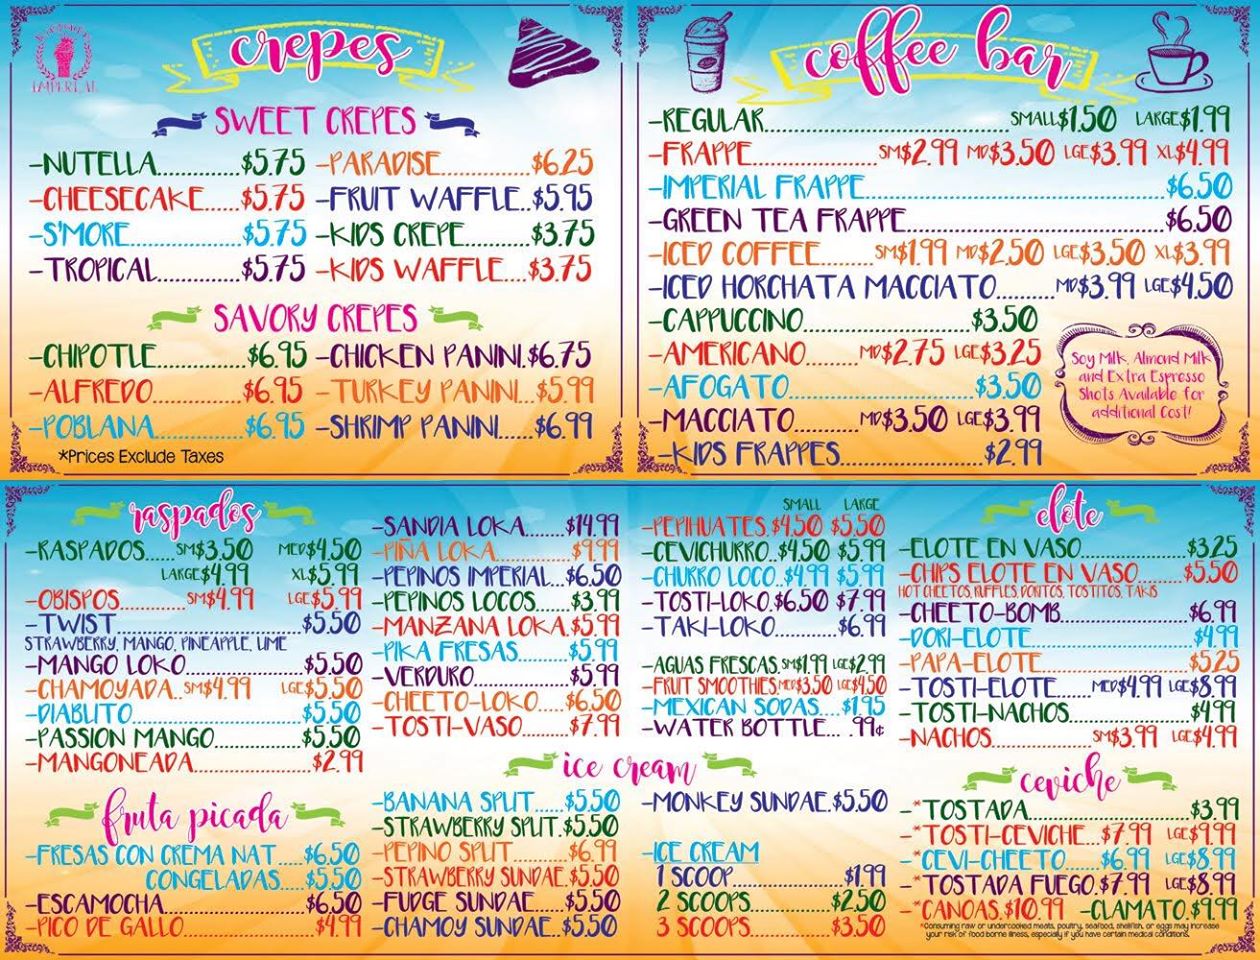 IMPERIAL
crepes
SWEET CREPES
-NUTELLA..............$5.75
-CHEESECAKE......$5.75
-S'MORE..................$5.75
-TROPICAL..............$5.75
-PARADISE...............$6.25
-FRUIT WAFFLE..$5.95
-KIDS CREPE...........$3.75
-KIDS WAFFLE....$3.75
SAVORY CREPES
-CHIPOTLE...............$6.95
-ALFREDO...............$6.95
-POBLANA...............$6.95
-CHICKEN PANINI.$6.75
-TURKEY PANINI...$5.99
-SHRIMP PANINI......$6.99
*Prices Exclude Taxes
coffee bar
-REGULAR........................................SMALL$1.50 LARGE$1.99
-FRAPPE....................SM$2.99 MD$3.50 LGE$3.99 XL$4.99
-IMPERIAL FRAPPE..................................................$6.50
-GREEN TEA FRAPPE...........................................$6.50
-ICED COFFEE.........SM$1.99 MD$2.50 LGE$3.50 XL$3.99
-ICED HORCHATA MACCIATO..........MD$3.99 LGE$4.50
-CAPPUCCINO...........................$3.50
-AMERICANO.........MD$2.75 LGE$3.25
-AFOGATO..............................$3.50
-MACCIATO...........MD$3.50 LGE$3.99
-KIDS FRAPPES........................$2.99
Soy Milk, Almond Milk
and Extra Espresso
Shots Available for
additional Cost!
raspados
-RASPADOS......SM$3.50 MED$4.50
LARGE$4.99 XL$5.99
-OBISPOS............SM$4.99 LGE$5.99
-TWIST.................................$5.50
STRAWBERRY, MANGO, PINEAPPLE, LIME
-MANGO LOKO....................$5.50
-CHAMOYADA..SM$4.99 LGE$5.50
-DIABLITO............................$5.50
-PASSION MANGO...............$5.50
-MANGONEADA....................$2.99
fruta picada
-FRESAS CON CREMA NAT.....$6.50
CONGELADAS.....$5.50
-ESCAMOCHA........................$6.50
-PICO DE GALLO....................$4.99
-SANDIA LOKA........$14.99
-PIÑA LOKA..............$9.99
-PEPINOS IMPERIAL...$6.50
-PEPINOS LOCOS........$3.99
-MANZANA LOKA.$5.99
-PIKA FRESAS..........$5.99
-VERDURO................$5.99
-CHEETO-LOKO.....$6.50
-TOSTI-VASO..........$7.99
SMALL LARGE
-PEPIHUATES.$4.50 $5.50
-CEVICHURRO..$4.50 $5.99
-CHURRO LOCO..$4.99 $5.99
-TOSTI-LOKO.$6.50 $7.99
-TAKI-LOKO............$6.99
-AGUAS FRESCAS.SM$1.99 LGE$2.99
-FRUIT SMOOTHIES.MED$3.50 LGE$4.50
-MEXICAN SODAS....$1.95
-WATER BOTTLE... .99¢
ice cream
-BANANA SPLIT......$5.50
-STRAWBERRY SPLIT.$5.50
-PEPINO SPLIT..........$6.99
-STRAWBERRY SUNDAE.$5.50
-FUDGE SUNDAE.....$5.50
-CHAMOY SUNDAE...$5.50
-MONKEY SUNDAE.$5.50
-ICE CREAM
1 SCOOP....................$1.99
2 SCOOPS.................$2.50
3 SCOOPS.................$3.50
elote
-ELOTE EN VASO...................$3.25
-CHIPS ELOTE EN VASO........$5.50
HOT CHEETOS, RUFFLES, DORITOS, TOSTITOS, TAKIS
-CHEETO-BOMB.....................$6.99
-DORI-ELOTE..........................$4.99
-PAPA-ELOTE........................$5.25
-TOSTI-ELOTE......MED$4.99 LGE$8.99
-TOSTI-NACHOS....................$4.99
-NACHOS................SM$3.99 LGE$4.99
ceviche
-*TOSTADA..........................$3.99
-*TOSTI-CEVICHE...$7.99 LGE$9.99
-*CEVI-CHEETO......$6.99 LGE$8.99
-*TOSTADA FUEGO.$7.99 LGE$8.99
-*CANOAS.$10.99 -CLAMATO.$9.99
*Consuming raw or undercooked meats, poultry, seafood, shellfish, or eggs may increase
your risk of food borne illness, especially if you have certain medical conditions.